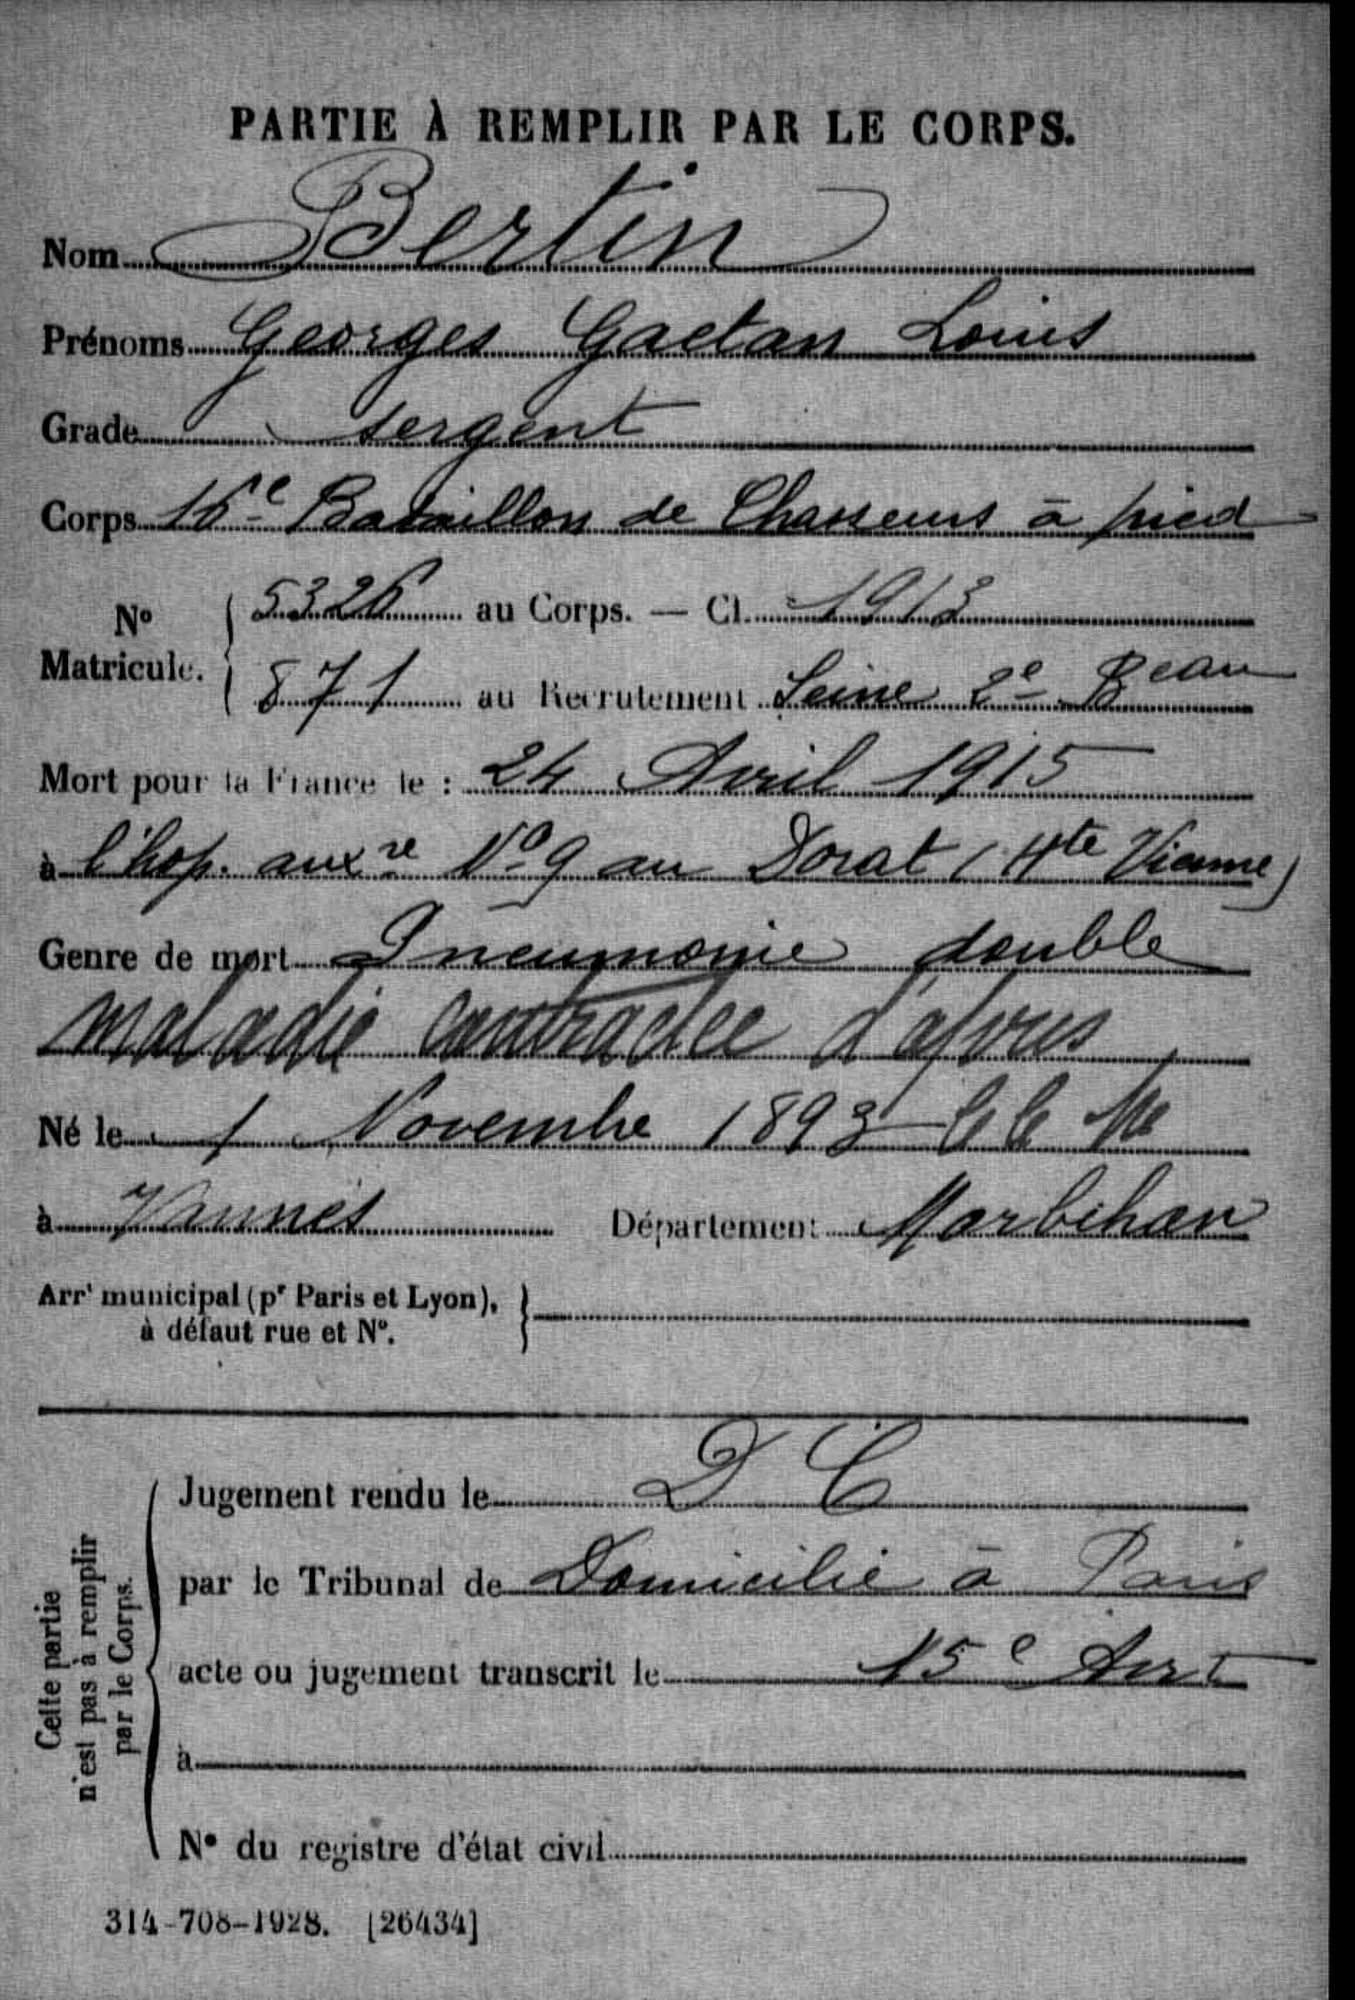 PARTIE À REMPLIR PAR LE CORPS.
Nom Bertin
Prénoms Georges Gaetan Louis
Grade sergent
Corps 16e Bataillon de Chasseurs à pied
No Matricule. { 5326 au Corps. — Cl. 1913
871 au Recrutement Seine 2e Beau
Mort pour la France le : 24 Avril 1915
à l'hop. auxre No 9 au Dorat (Hte Vienne)
Genre de mort Pneumonie double
maladie contractée d'après
Né le 1 Novembre 1893
à Vannes Département Morbihan
Arrt municipal (pr Paris et Lyon),
à défaut rue et No.
Cette partie
n'est pas à remplir
par le Corps.
Jugement rendu le D C
par le Tribunal de Domicilié à Paris
acte ou jugement transcrit le 15e Arrt
à
No du registre d'état civil
314-708-1928. [26434]